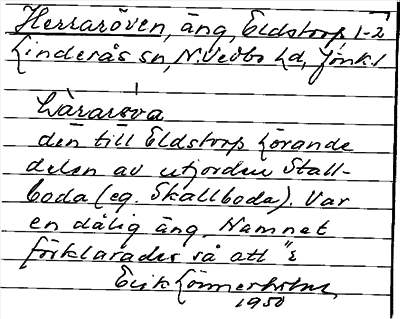 Herraröven, äng, Eldstorp 1-2
Linderås sn, N. Vedbo hd, Jönk. l
härarøva
den till Eldstorp hörande
delen av utjorden Stall-
boda (eg. Skallboda). Var
en dålig äng. Namnet
förklarades så att "&
Erik Lönnerholm,
1950